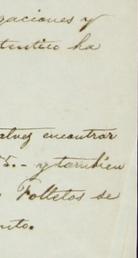 gaciones y
tentico ha
alvez encontrar
5.- y tambien
Folletos se
nto.